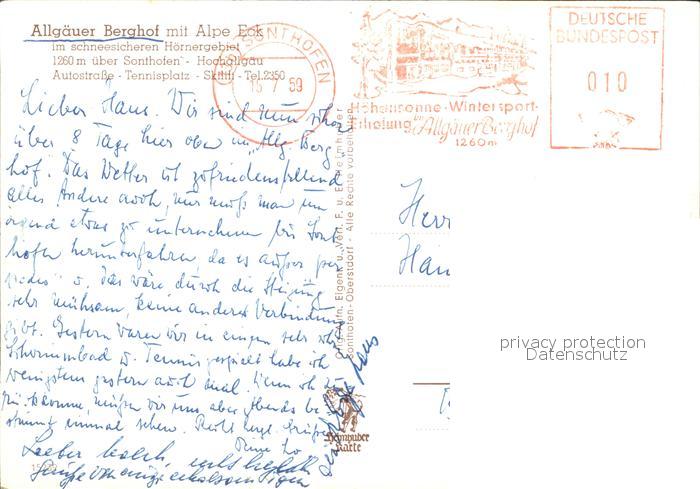 Allgäuer Berghof mit Alpe Eck
im schneesicheren Hörnergebiet
1260 m über Sonthofen - Hochallgäu
Autostraße - Tennisplatz - Skilift - Tel. 2350
SONTHOFEN
15 7 59
Höhensonne-Wintersport-
Erholung im Allgäuer Berghof
1260m
DEUTSCHE
BUNDESPOST
010
Lieber Hans. Wir sind nun schon
über 8 Tage hier oben im "Allg. Berg-
hof". Das Wetter ist zufriedenstellend
alles Andere auch, nur muß man um
irgend etwas zu unternehmen bis Sont-
hofen herunterfahren da es außer per
pedes" u. das wäre durch die Steigung
sehr mühsam, keine andere Verbindung
gibt. Gestern waren wir in einem sehr schönen
Schwimmbad u. Tennis gespielt habe ich
wenigstens gestern auch mal. Wenn ich zu-
rückkomme, müssen wir uns aber Abends be-
stimmt einmal sehen. Recht herzl. Grüße
Deine
Grüße von
Orig. Aufn. Eigent. u. Verl. F. u. E. Heimhuber
Sonthofen-Oberstdorf - Alle Rechte vorbehalten
Heimhuber
Karte
Herr
Han
privacy protection
Datenschutz